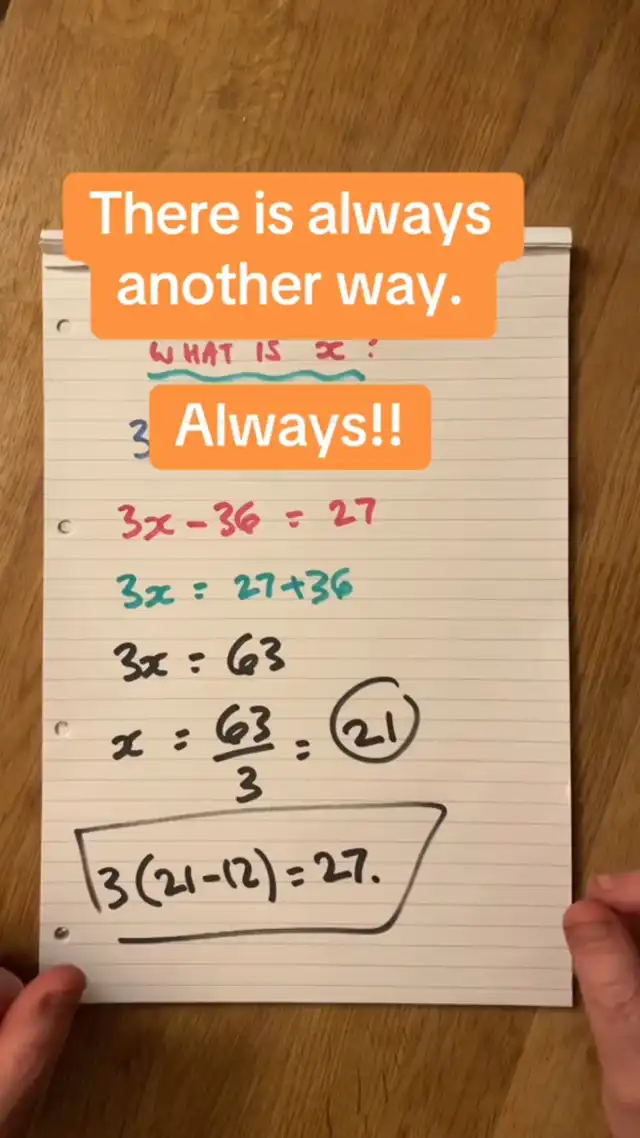 There is always
another way.
WHAT IS x?
Always!!
3
3x - 36 = 27
3x = 27+36
3x = 63
x = 63/3 = 21
3(21-12)=27.